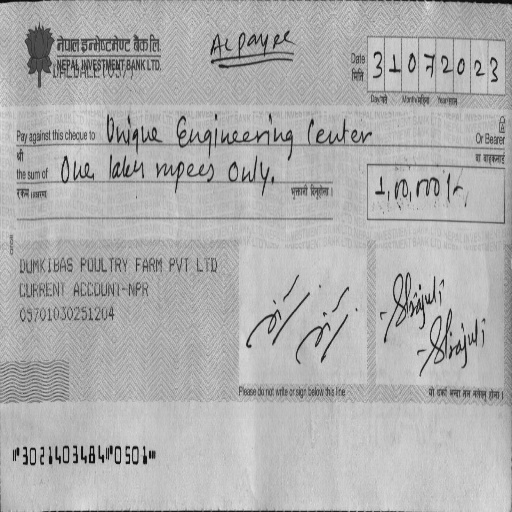 नेपाल इन्भेष्टमेण्ट बैंक लि.
NEPAL INVESTMENT BANK LTD.
A/c payee
Date
मिति
31072023
Day/गते Month/महिना Year/साल
Pay against this cheque to Unique Engineering Center Or Bearer
श्री वा वाहकलाई
the sum of One lakh rupees Only. 1,00,000/-
भुक्तानी दिनुहोला ।
DUMKIBAS POULTRY FARM PVT LTD
CURRENT ACCOUNT-NPR
05701030251204
Please do not write or sign below this line
"3021403484"0501"